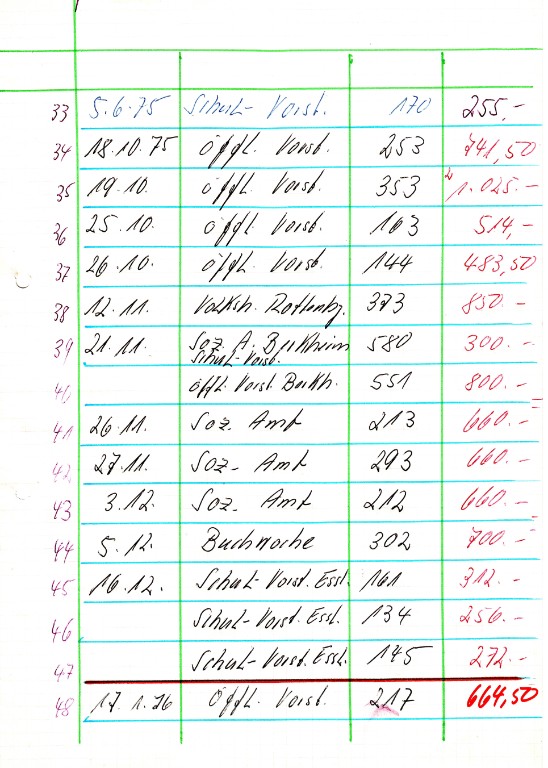 33 5.6.75 Schul-Vorst. 170 255,-
34 18.10.75 öffl. Vorst. 253 741,50
35 19.10. öffl. Vorst. 353 1.025.-
36 25.10. öffl. Vorst. 163 514,-
37 26.10. öffl. Vorst. 144 483,50
38 12.11. Volksh. Rottenbg. 373 850.-
39 21.11. Soz. A. Berkheim 580 300.-
Schul-Vorst.
40 öffl. Vorst. Berkh. 551 800.-
41 26.11. Soz. Amt 213 660.-
42 27.11. Soz- Amt 293 660.-
43 3.12. Soz. Amt 212 660.-
44 5.12. Buchwoche 302 700.-
45 16.12. Schul-Vorst. Essl. 161 312.-
46 Schul-Vorst. Essl. 134 256.-
47 Schul-Vorst. Essl. 145 272.-
48 17.1.76 Öffl. Vorst. 217 664,50